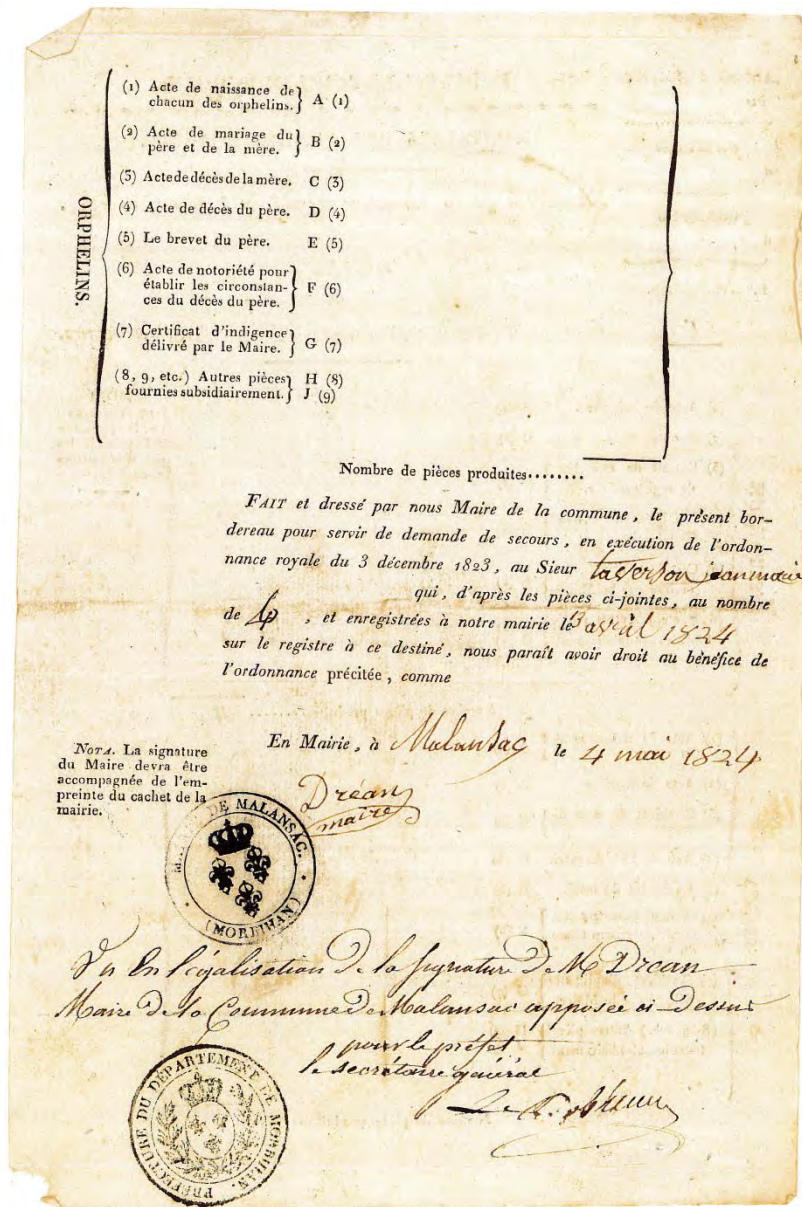 ORPHELINS.
(1) Acte de naissance de
chacun des orphelins. } A (1)
(2) Acte de mariage du
père et de la mère. } B (2)
(3) Acte de décès de la mère. C (3)
(4) Acte de décès du père. D (4)
(5) Le brevet du père. E (5)
(6) Acte de notoriété pour
établir les circonstan-
ces du décès du père. } F (6)
(7) Certificat d'indigence
délivré par le Maire. } G (7)
(8, 9, etc.) Autres pièces
fournies subsidiairement. } H (8)
J (9)
Nombre de pièces produites........
FAIT et dressé par nous Maire de la commune, le présent bor-
dereau pour servir de demande de secours, en exécution de l'ordon-
nance royale du 3 décembre 1823, au Sieur taverson jean marie
qui, d'après les pièces ci-jointes, au nombre
de 4, et enregistrées à notre mairie le 3 avril 1824
sur le registre à ce destiné, nous paraît avoir droit au bénéfice de
l'ordonnance précitée, comme
En Mairie, à Malansac le 4 mai 1824
NOTA. La signature
du Maire devra être
accompagnée de l'em-
preinte du cachet de la
mairie.
Dréan
maire
DE MALANSAC.
(MORBIHAN)
Vu En légalisation De la signature De M Drean
Maire De la Commune De Malansac apposée ci-Dessus
pour le préfet
le secrétaire général
PRÉFECTURE DU DÉPARTEMENT DE MORBIHAN.